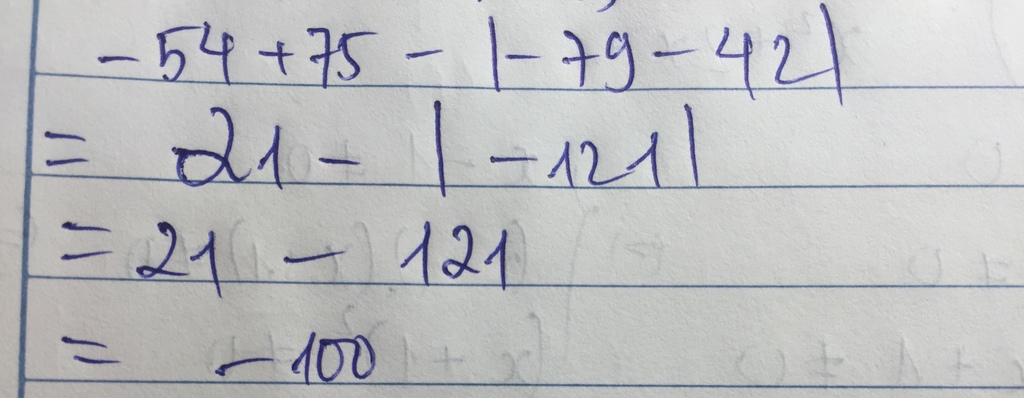 -54 + 75 - |-79 - 42|
= 21 - |-121|
= 21 - 121
= -100